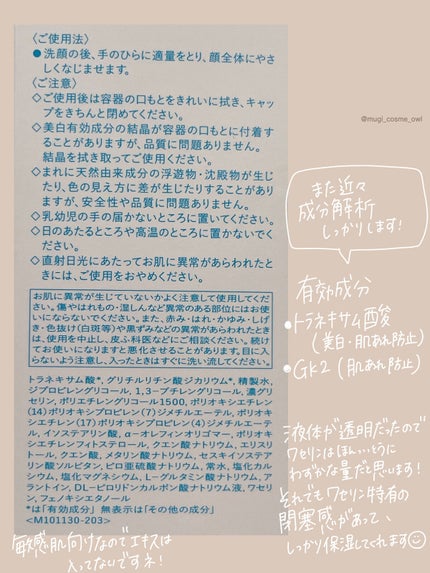 〈ご使用法〉
●洗顔の後、手のひらに適量をとり、顔全体にやさ
しくなじませます。
〈ご注意〉
◇ご使用後は容器の口もとをきれいに拭き、キャッ
プをきちんと閉めてください。
◇美白有効成分の結晶が容器の口もとに付着す
ることがありますが、品質に問題ありません。
結晶を拭き取ってご使用ください。
◇まれに天然由来成分の浮遊物・沈殿物が生じ
たり、色の見え方に差が生じたりすることがあり
ますが、安全性や品質に問題ありません。
◇乳幼児の手の届かないところに置いてください。
◇日のあたるところや高温のところに置かないでく
ださい。
◇直射日光にあたってお肌に異常があらわれたと
きには、ご使用をおやめください。
お肌に異常が生じていないかよく注意して使用してくだ
さい。傷やはれもの・湿しんなど異常のある部位にはお使
いにならないでください。また、赤み・はれ・かゆみ・しげ
き・色抜け(白斑等)や黒ずみなどの異常があらわれたとき
は、使用を中止し、皮ふ科医などにご相談ください。続け
てお使いになりますと悪化させることがあります。目に入
らないよう注意し、入ったときはすぐに洗い流してください。
トラネキサム酸*、グリチルリチン酸ジカリウム*、精製水、
ジプロピレングリコール、1,3-ブチレングリコール、濃グリ
セリン、ポリエチレングリコール1500、ポリオキシエチレン
(14)ポリオキシプロピレン(7)ジメチルエーテル、ポリオキ
シエチレン(17)ポリオキシプロピレン(4)ジメチルエーテ
ル、イソステアリン酸、α-オレフィンオリゴマー、ポリオキシ
エチレンフィトステロール、クエン酸ナトリウム、エリスリ
トール、クエン酸、メタリン酸ナトリウム、セスキイソステア
リン酸ソルビタン、ピロ亜硫酸ナトリウム、常水、塩化カル
シウム、塩化マグネシウム、L-グルタミン酸ナトリウム、ア
ラントイン、DL-ピロリドンカルボン酸ナトリウム液、ワセリ
ン、フェノキシエタノール
*は「有効成分」無表示は「その他の成分」
<M101130-203>
敏感肌向けなのでエキスは
入ってないですネ!
@mugi_cosme_owl
また近々
成分解析
しっかりします!
有効成分
•トラネキサム酸
(美白・肌あれ防止)
•GK2(肌あれ防止)
液体が透明だったので
ワセリンはほんっとうに
わずかな量だと思います!
それでもワセリン特有の
閉塞感があって、
しっかり保湿してくれます☺